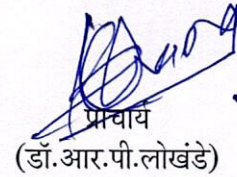 प्राचार्य
(डॉ.आर.पी.लोखंडे)